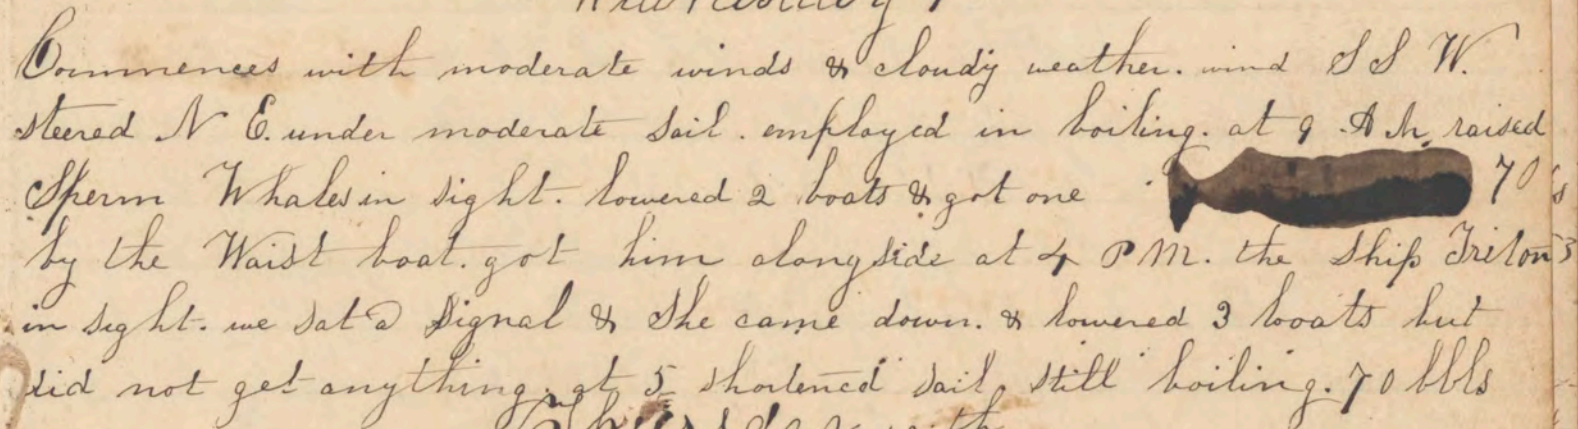 Commences with moderate winds & cloudy weather. wind S S W.
steered N E. under moderate sail. employed in boiling. at 9 A M. raised
Sperm Whales in sight. lowered 2 boats & got one 70
by the Waist boat. got him alongside at 4 P M. the Ship Triton
in sight. we sat a signal & she came down. & lowered 3 boats but
did not get anything. at 5 shortened sail. still boiling. 70 bbls